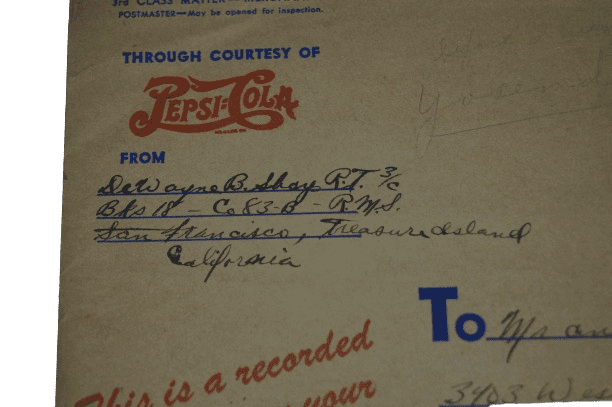 3rd CLASS MATTER—
POSTMASTER—May be opened for inspection.
THROUGH COURTESY OF
PEPSI-COLA
FROM
DeWayne B. Shay R.T. 3/c
Bks 18 - Co 83-B - R.M.S.
San Francisco, Treasure Island
California
To Mr an
3903 We
This is a recorded
your